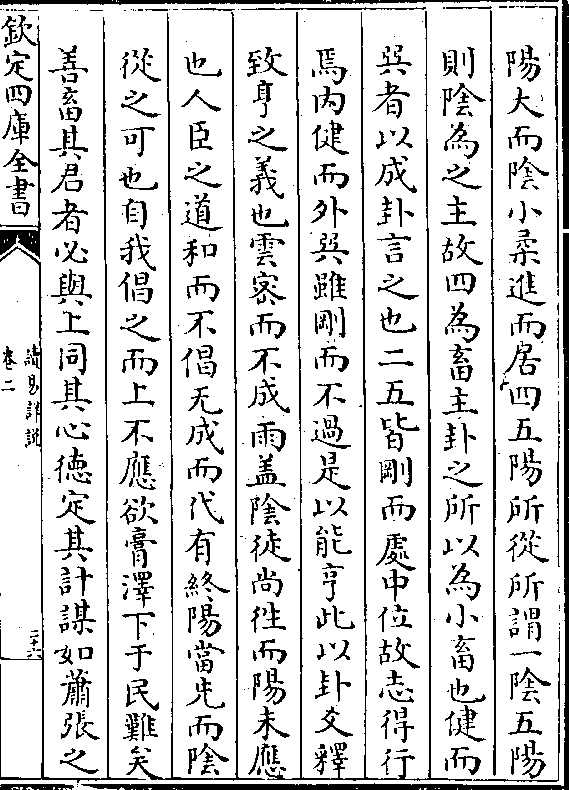 陽大而陰小柔進而居四五陽所從所謂一陰五陽
則陰為之主故四為畜主卦之所以為小畜也健而
巽者以成卦言之也二五皆剛而處中位故志得行
焉内健而外巽雖剛而不過是以能亨此以卦爻釋
致亨之義也雲宻而不成雨盖陰徒尚徃而陽未應
也人臣之道和而不倡无成而代有終陽當先而陰
從之可也自我倡之而上不應欲膏澤下于民難矣
善畜其君者必與上同其心徳定其計謀如蕭張之
欽定四庫全書
讀易詳說
卷二
二十六